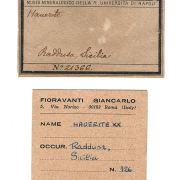 MUSEO MINERALOGICO DELLA R. UNIVERSITÀ DI NAPOLI
Hauerite
Raddusa, Sicilia
No. 21366.
FIORAVANTI GIANCARLO
NAME HAUERITE XX
OCCUR. Raddusa,
Sicilia
N. 126